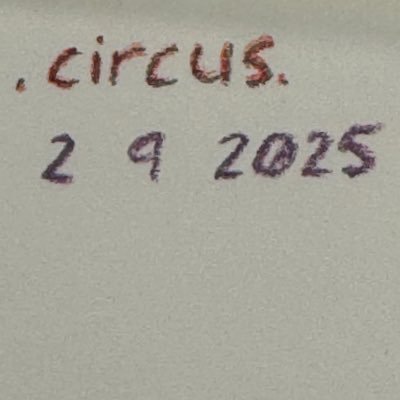 .circus.
2 9 2025